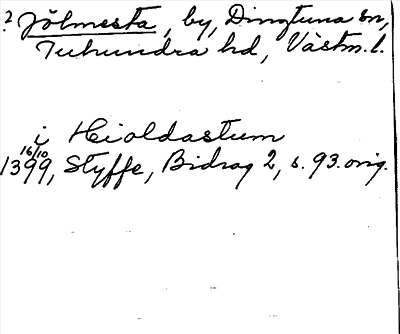 ? Jölmesta, by, Dingtuna sn,
Tuhundra hd, Västm. l.
i Hioldastum
16/10
1399, Styffe, Bidrag 2, s. 93. orig.